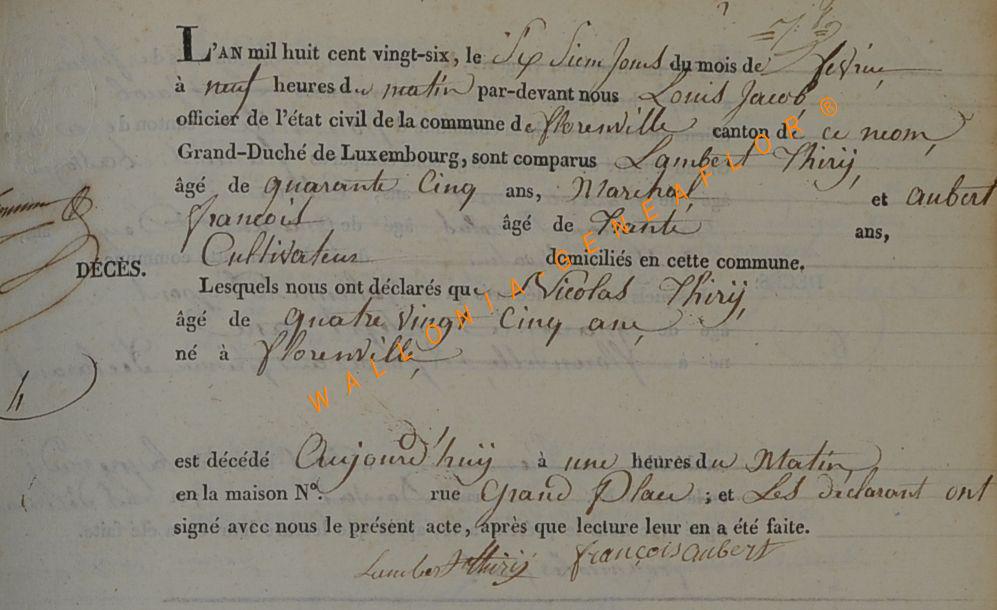 L'AN mil huit cent vingt-six, le Six Siem Jours du mois de fevrier
à neuf heures du matin par-devant nous Louis Jacob
officier de l'état civil de la commune de florenville canton de ce nom,
Grand-Duché de Luxembourg, sont comparus Lambert Thirÿ,
âgé de quarante Cinq ans, Marchal et aubert
françois âgé de Trante ans,
Cultivateur domiciliés en cette commune.
DÉCÈS.
Lesquels nous ont déclarés que Nicolas Thirÿ,
âgé de quatre vingt Cinq ans,
né à florenville,
WALLONIA-GENEAFLOR®
est décédé Aujourd'huÿ à une heures du Matin
en la maison N°. rue Grand Place ; et Les déclarant ont
signé avec nous le présent acte, après que lecture leur en a été faite.
Lambert thirÿ françois aubert